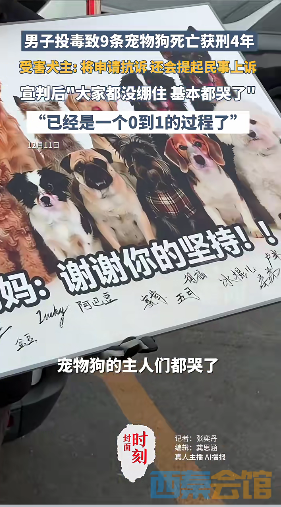 男子投毒致9条宠物狗死亡获刑4年
受害犬主：将申请抗诉 还会提起民事上诉
宣判后"大家都没绷住 基本都哭了"
“已经是一个0到1的过程了”
12月11日
妈：谢谢你的坚持！！
Lucky
阿巴豆
宠物狗的主人们都哭了
封面
时刻
记者：张奕丹
真人主播 AI播报
西秦会馆